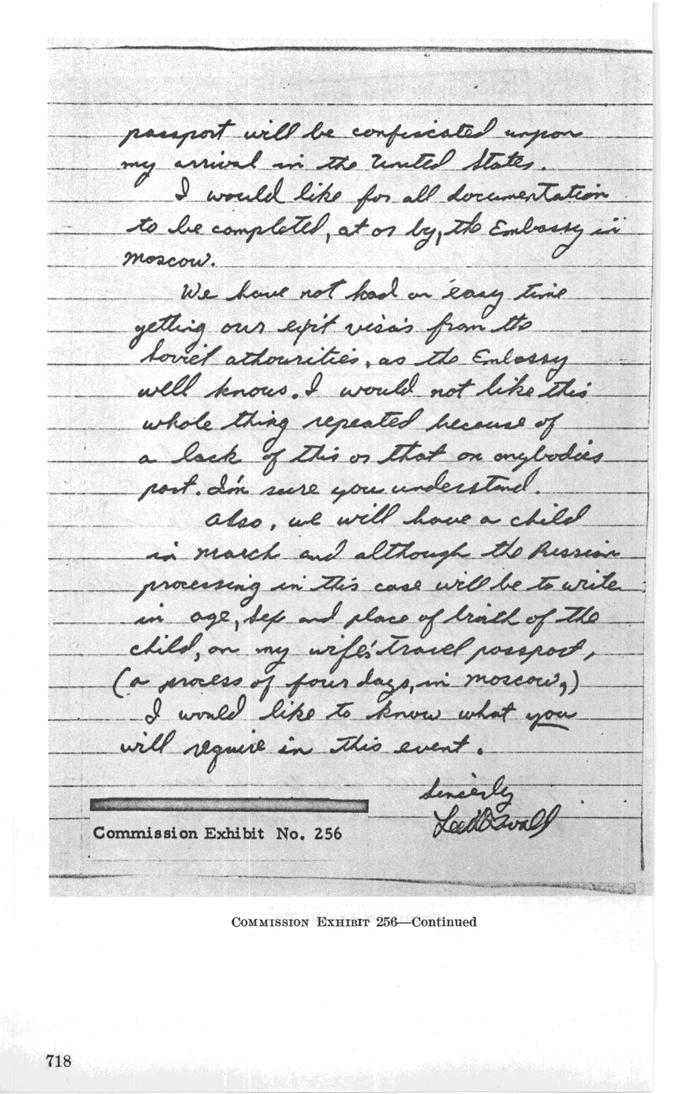 passport will be confiscated unpon
my arrival in the United States.
I would like for all documentation
to be completed, at or by, the Embassy in
Moscow.
We have not had an easy time
getting our exit visas from the
Soviet athourities, as the Embassy
well knows. I would not like this
whole thing repeated because of
a lack of this or that on anybodies
part. I'm sure you understand.
Also, we will have a child
in march and although the Russian
processing in this case will be to write
in age, sex and place of birith of the
child, on my wife's travel passport,
(a process of four days, in Moscow,)
I would like to know what you
will require in this event.
Sincerly
Lee H Oswald
Commission Exhibit No. 256
COMMISSION EXHIBIT 256—Continued
718